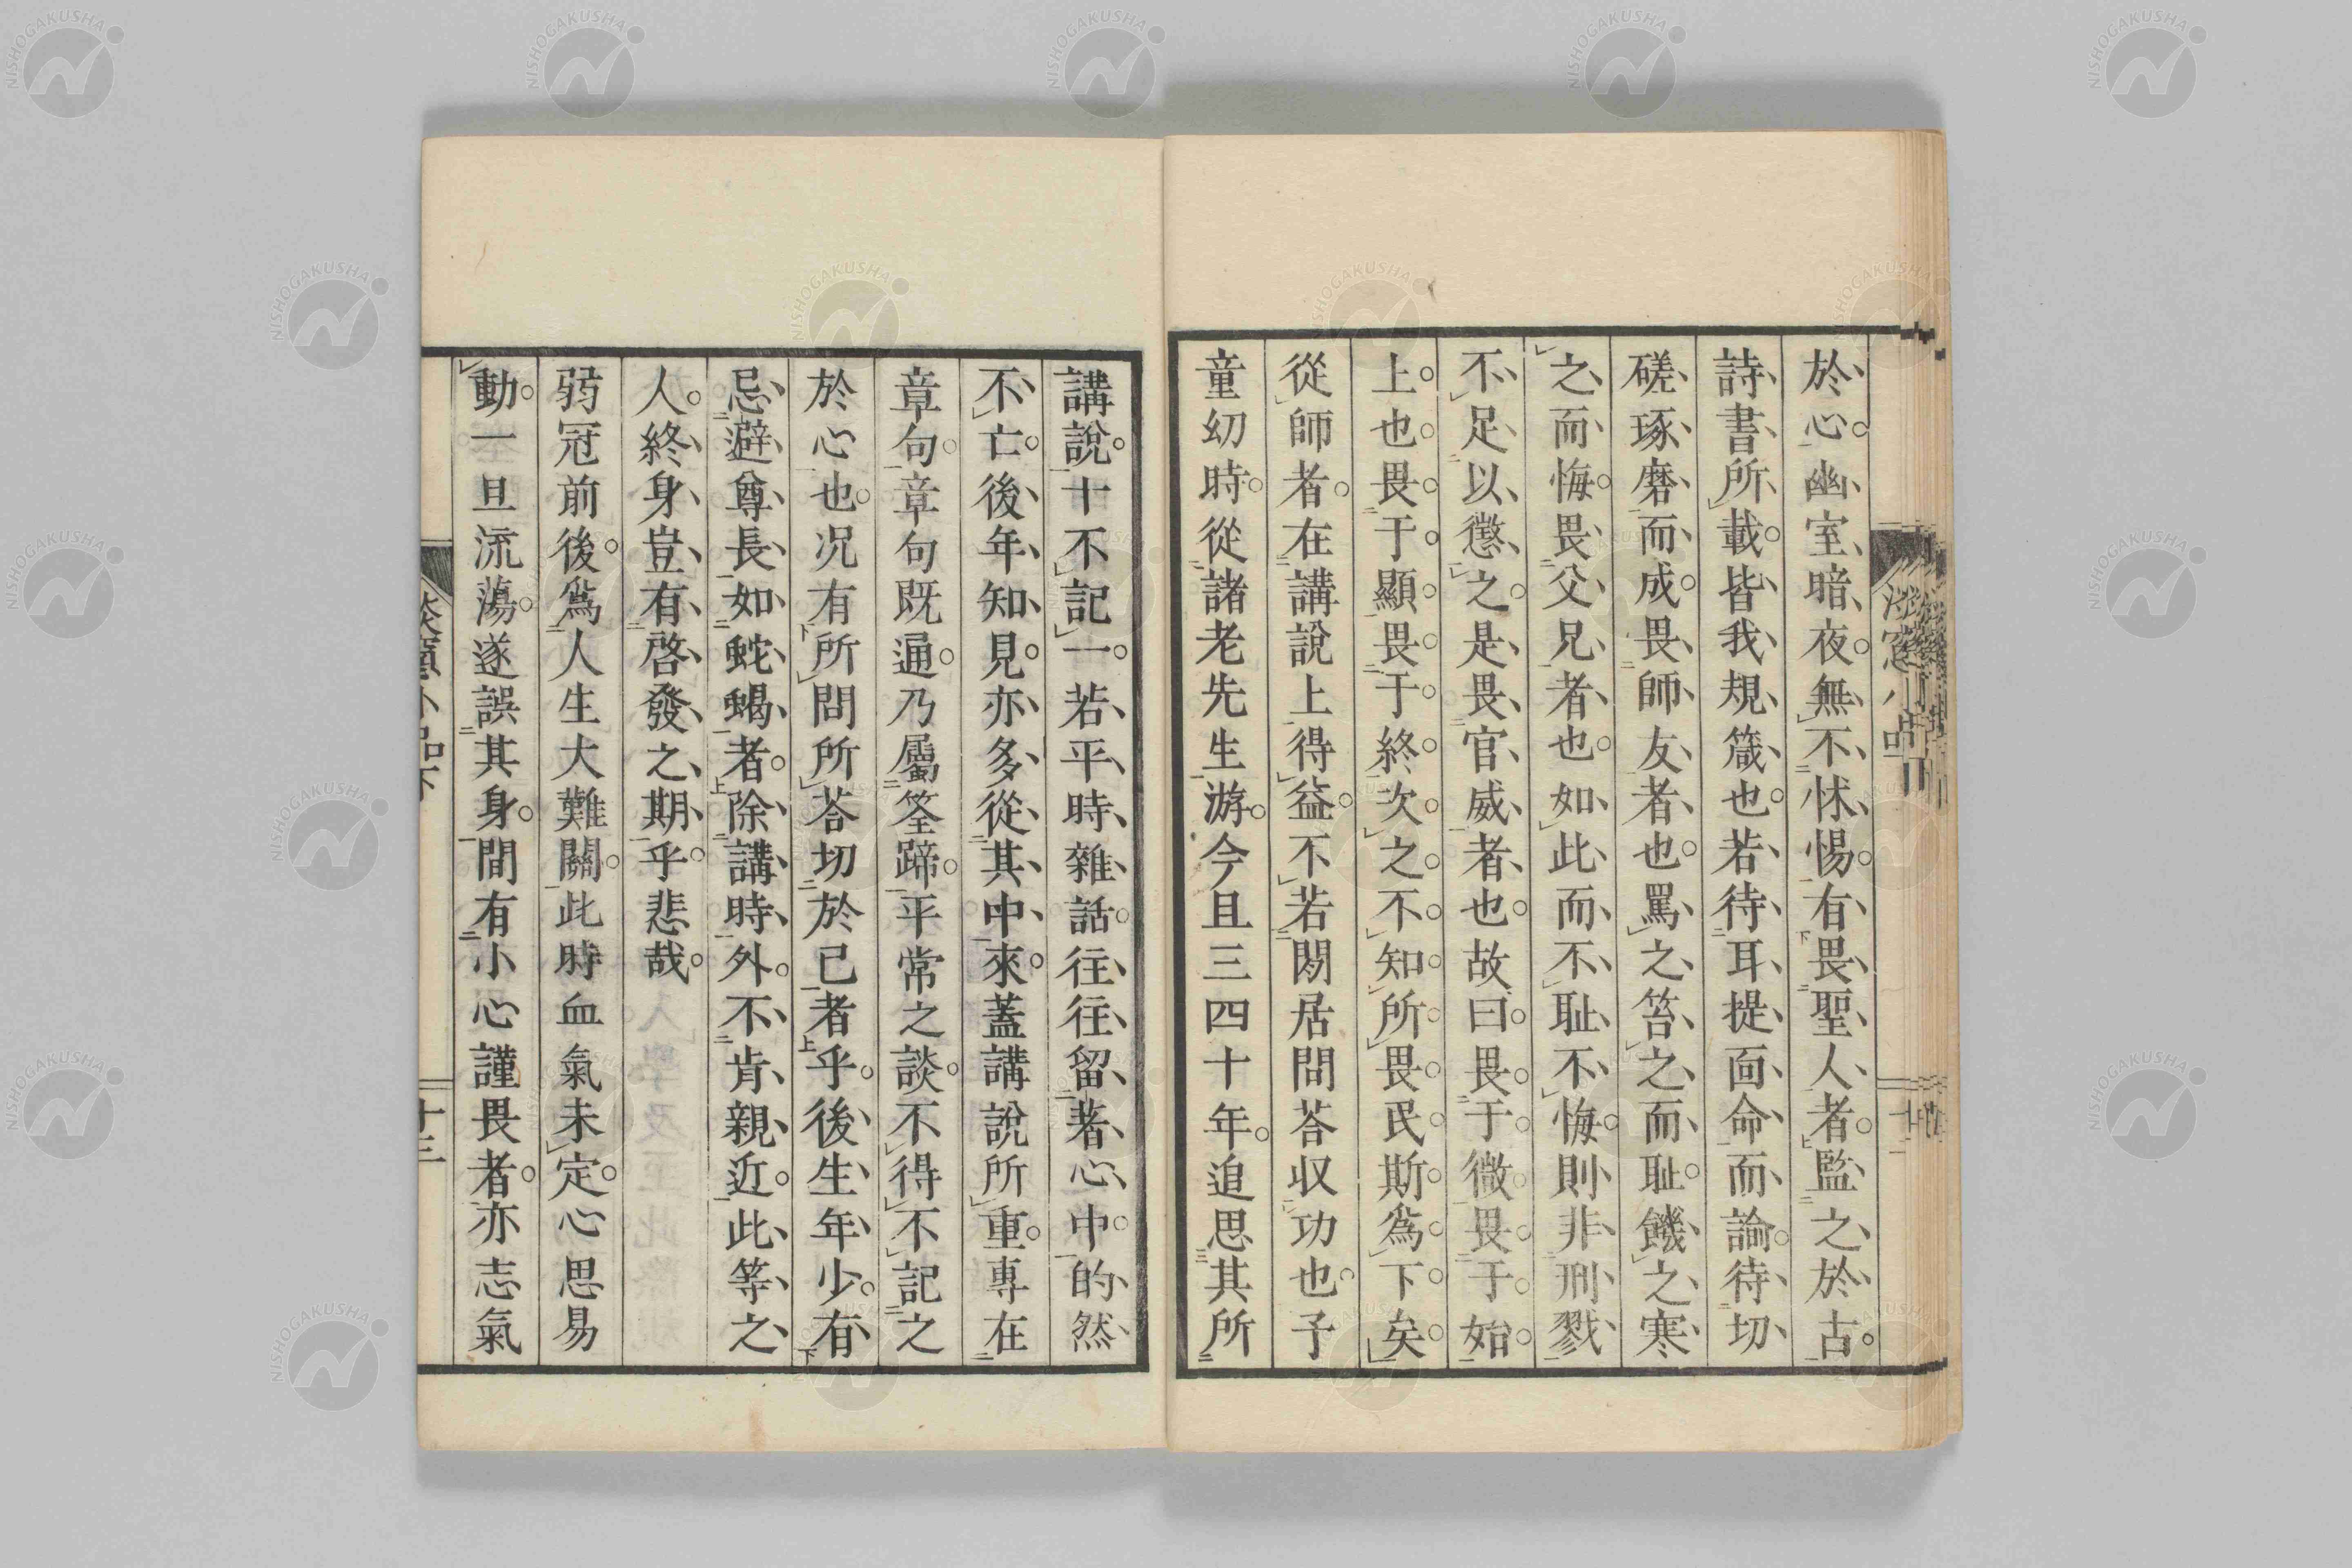 於心。幽室、暗、夜。無不怵惕。有畏聖人者。監之於古。
詩書所載。皆我規箴也。若待耳提面命而論。待切
磋琢磨而成。畏師友者也。罵之笞之而耻。饑之寒
之而悔。畏父兄者也。如此而不耻不悔。則非刑戮
不足以懲之。是畏官威者也。故曰。畏于微畏于始。
上也。畏于顯。畏于終。次之。不知所畏。民斯爲下矣。
從師者。在講說上得益。不若閑居問荅収功也。予
童幼時。從諸老先生游。今且三四十年。追思其所
講說。十不記一。若平時雜話。往往留著心中。的然
不亡。後年知見。亦多從其中來。蓋講說所重。專在
章句。章句既通。乃屬筌蹄。平常之談。不得不記之
於心也。况有所問所荅切於己者乎。後生年少。有
忌避尊長如蛇蝎者。除講時外。不肯親近。此等之
人。終身豈有啓發之期乎。悲哉。
弱冠前後。爲人生大難關。此時血氣未定。心思易
動。一旦流蕩。遂誤其身。間有小心謹畏者。亦志氣
十三
NISHOGAKUSHA